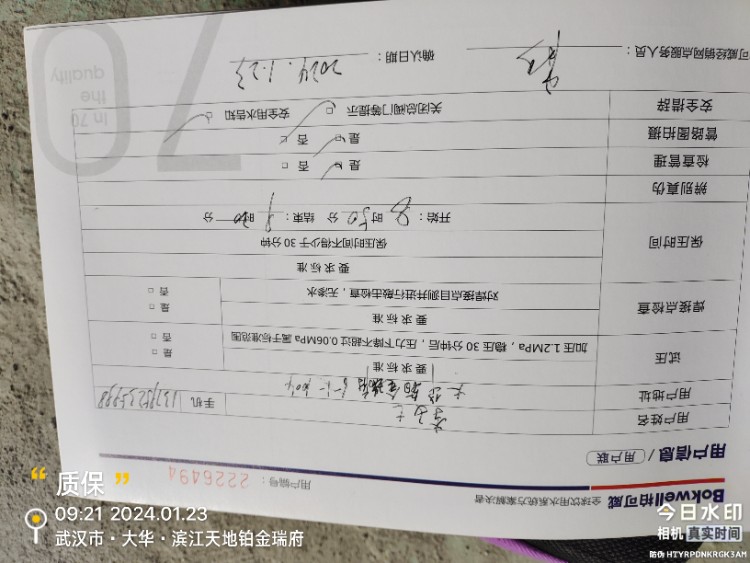 Bokwell柏可威 全球饮用水系统方案解决者
用户编号：2226494
用户信息 / 用户联
用户姓名
用户地址
手机
试压
要求标准
加压1.2MPa，稳压30分钟后，压力下降不超过0.06MPa属于标准范围
是 □
否 □
焊接点检查
要求标准
对焊接点目测并进行敲击检查，无渗水
是 □
否 □
保压时间
要求标准
保压时间不得少于30分钟
开始：8 时 50 分 结束：9 时 20 分
辨别真伪
检查管理
是 □ 否 □
管路图拍摄
是 □ 否 □
安全措辞
关闭总阀门等提示 □ 安全用水告知 □
可威经销网点服务人员：
确认日期：2024.1.23
In 70
the
quality
70
“质保”
09:21 2024.01.23
武汉市·大华·滨江天地铂金瑞府
今日水印
相机 真实时间
防伪 HTYRPDNKRGK3AM